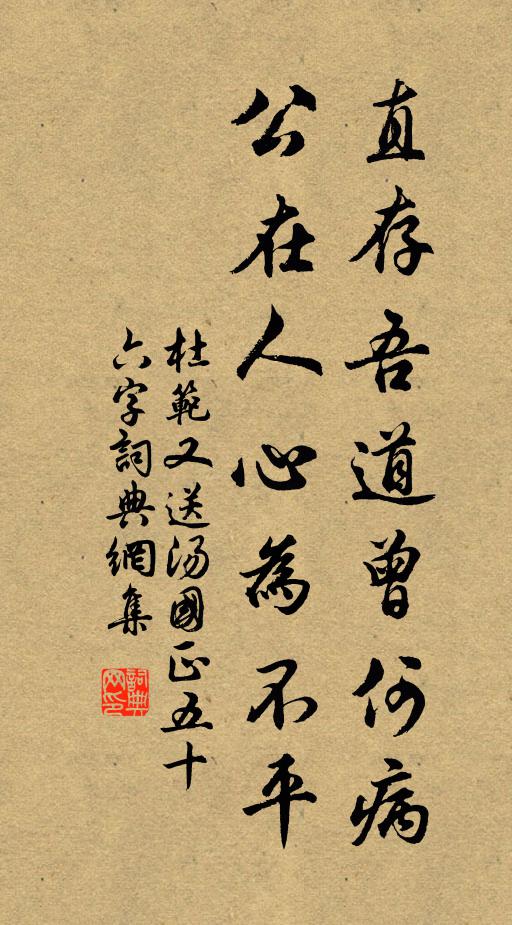 直存吾道曾何病
公在人心為不平
杜範又送湯國正五十
六字詞典網集
詞典网印